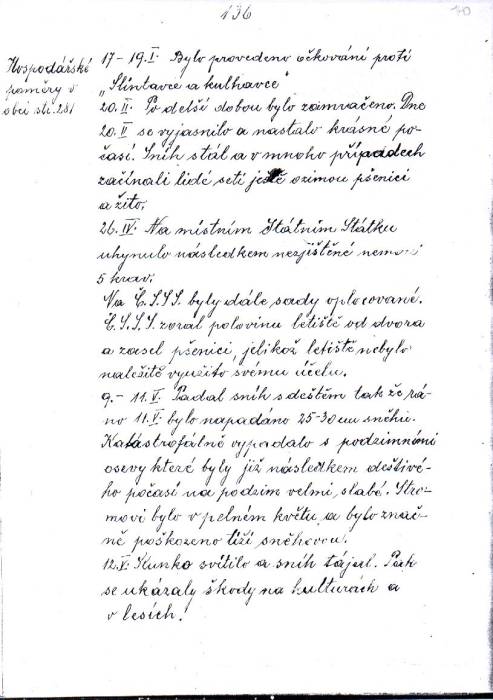 136
70
Hospodářské
poměry v
obci str. 281
17 - 19.I. Bylo provedeno očkování proti
„Slintavce a kulhavce"
20.II. Po delší dobou bylo zamračeno. Dne
20.II se vyjasnilo a nastalo krásné po-
časí. Sníh stál a v mnoho případech
začínali lidé seti ještě ozimou pšenici
a žito.
26.IV. Na místním Státním Státku
uhynulo následkem nezjištěné nemoci
5 krav.
Na Č.S.S.S. byly dále sady oplocované.
Č.S.S.S zoral polovinu letiště od dvora
a zasel pšenici, jelikož letiště nebylo
naležitě využito svému účelu.
9. - 11.V. Padal sníh s deštěm tak že rá-
no 11.V. bylo napadáno 25-30 cm sněhu.
Katastrofálně vypadalo s podzimnémi
osevy které byly již následkem deštivé-
ho počasí na podzim velmi slabé. Stro-
moví bylo v pelném květu a bylo znač-
ně poškozeno tíží sněhovou.
12.V. Slunko svítilo a sníh tájal. Pak
se ukázaly škody na kulturách a
v lesích.